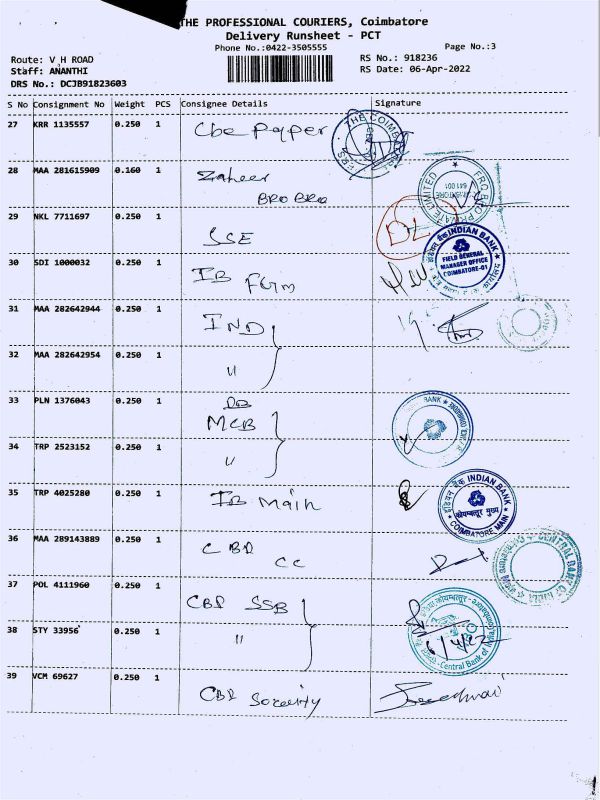 THE PROFESSIONAL COURIERS, Coimbatore
Delivery Runsheet - PCT
Phone No.:0422-3505555
Page No.:3
Route: V H ROAD
Staff: ANANTHI
DRS No.: DCJB91823603
RS No.: 918236
RS Date: 06-Apr-2022
S No Consignment No Weight PCS Consignee Details Signature
27 KRR 1135557 0.250 1 Cbe Paper
THE COIMBATORE
28 MAA 281615909 0.160 1 Zaheer
BRO BRO
641 001
29 NKL 7711697 0.250 1 SSE
DL
30 SDI 1000032 0.250 1 IB FGm
INDIAN BANK
FIELD GENERAL
MANAGER OFFICE
COIMBATORE-01
31 MAA 282642944 0.250 1 IND
32 MAA 282642954 0.250 1 "
33 PLN 1376043 0.250 1 MCB
BANK
34 TRP 2523152 0.250 1 "
35 TRP 4025280 0.250 1 IB Main
इंडियन बैंक INDIAN BANK
कोयम्बत्तूर मुख्य
COIMBATORE MAIN
36 MAA 289143889 0.250 1 CBI
CC
CENTRAL BANK OF INDIA
37 POL 4111960 0.250 1 CBI SSB
38 STY 33956 0.250 1 "
6/4/22
Central Bank of India
39 VCM 69627 0.250 1 CBI Society